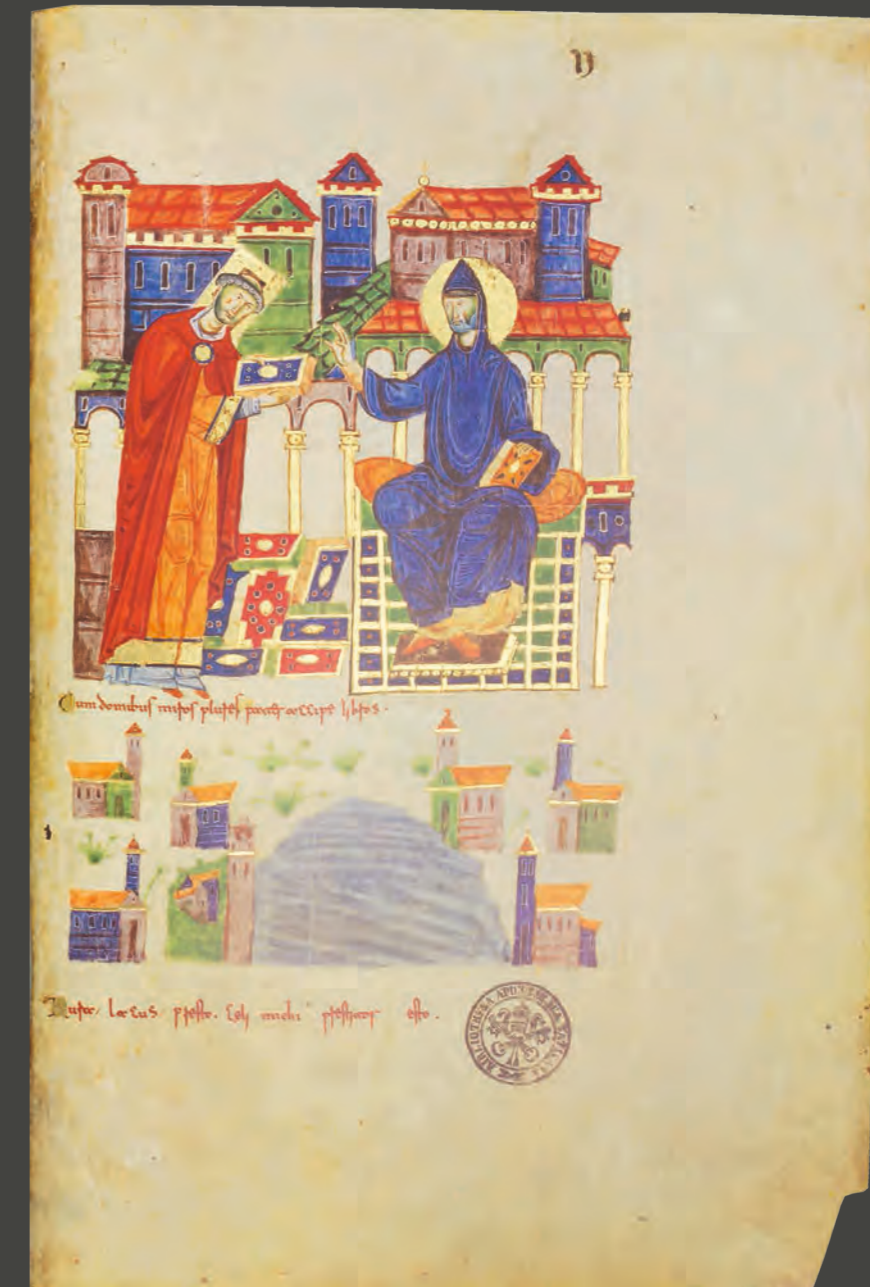 Cum domibus miros plures pater accipe libros.
Rura, lacus presto. Celi michi prestitor esto.
BIBLIOTHECA APOSTOLICA VATICANA